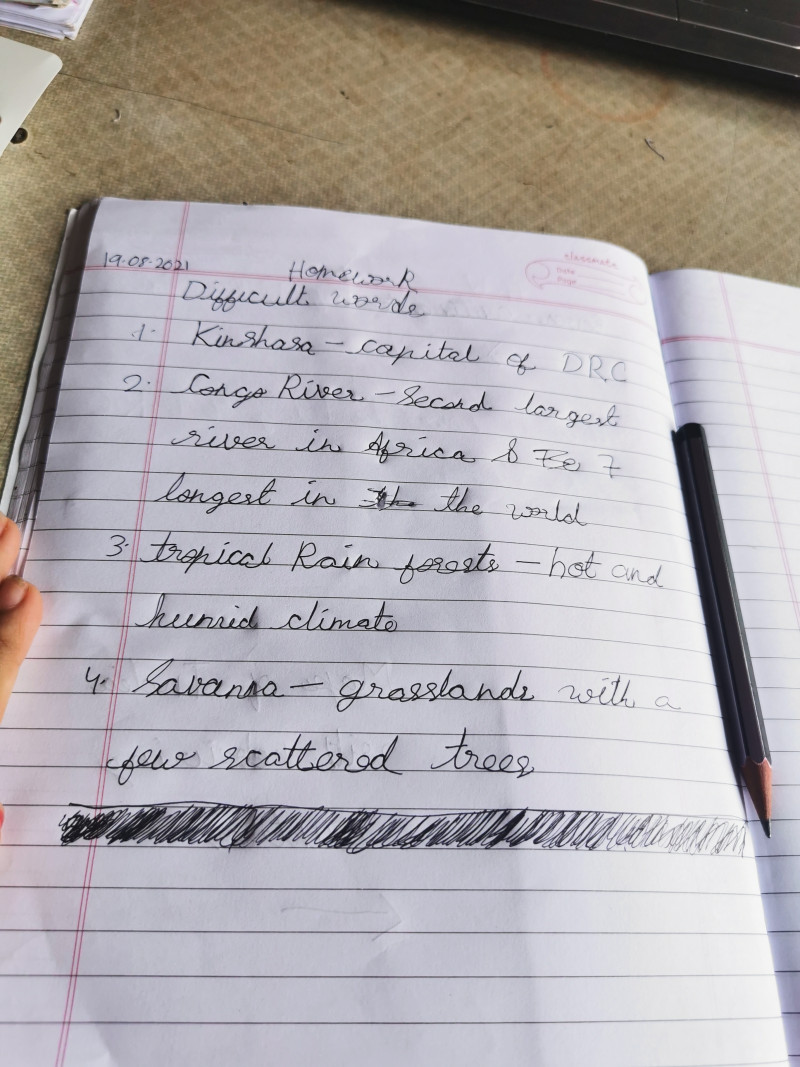 classmate
Date
Page
19.08.2021
Homework
Difficult words
1. Kinshasa – capital of DRC
2. Congo River – Second largest
river in Africa & 7
longest in the world
3. tropical Rain forests – hot and
humid climate
4. Savanna – grasslands with a
few scattered trees